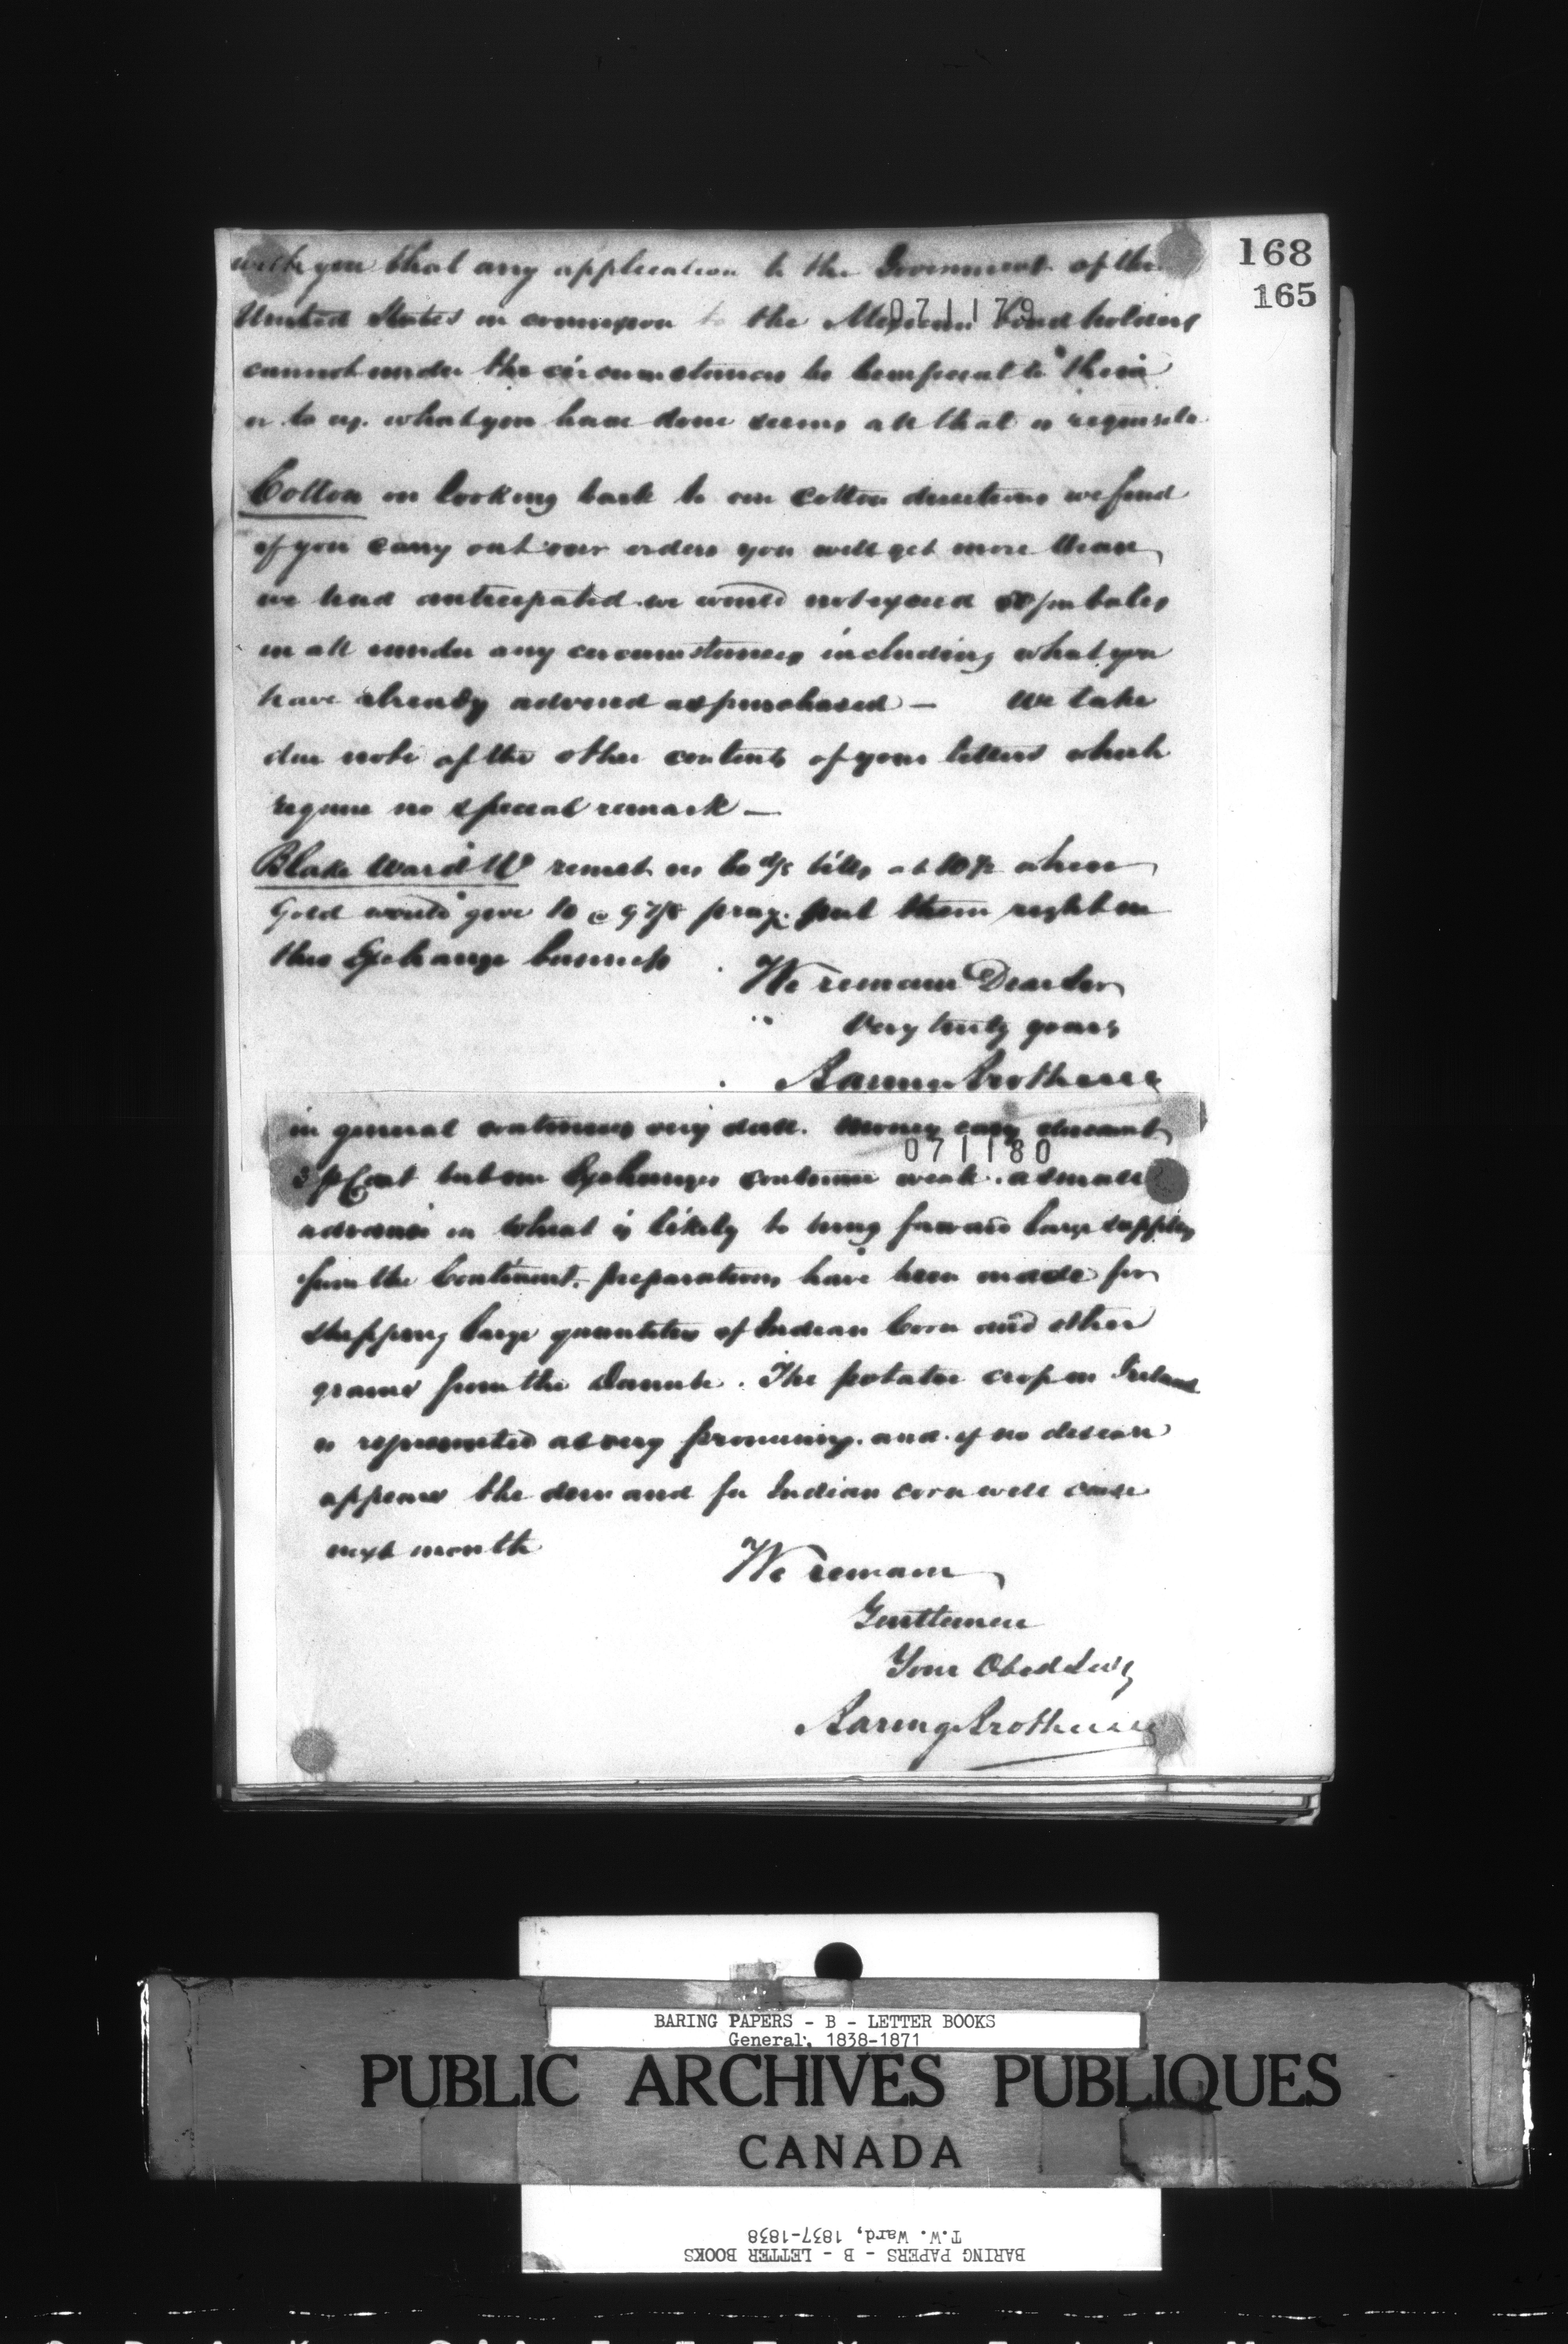 168
165
with you that any application to the Government of the
071179
United States in connexion to the Mexican bondholders
cannot under the circumstances be beneficial to them
or to us. what you have done seems all that is requisite
Cotton on looking back to our Cotton directions we find
if you carry out our orders you will get more than
we had anticipated. we would not exceed bales
in all under any circumstances including what you
have already advised as purchased — We take
due note of the other contents of your letters which
require no special remark —
Blake Ward & Co remit us 60 d/s bills at when
Gold would give 10 @ 9 7/8 pray put them right in
this Exchange business
We remain Dear Sir
Very truly yours
Baring Brothers
in general continues very dull. Money easy discount
071180
3 p Cent but our Exchanges continue weak. a small
advance in wheat is likely to bring forward large supplies
from the Continent. preparations have been made for
shipping large quantities of Indian Corn and other
grains from the Danube. The potatoe crop in Ireland
is represented as very promising. and if no disease
appears the demand for Indian corn will cease
next month
We remain
Gentlemen
Your Obed Servts
Baring Brothers
BARING PAPERS - B - LETTER BOOKS
General, 1838-1871
PUBLIC ARCHIVES PUBLIQUES
CANADA
T.W. Ward, 1837-1838
BARING PAPERS - B - LETTER BOOKS